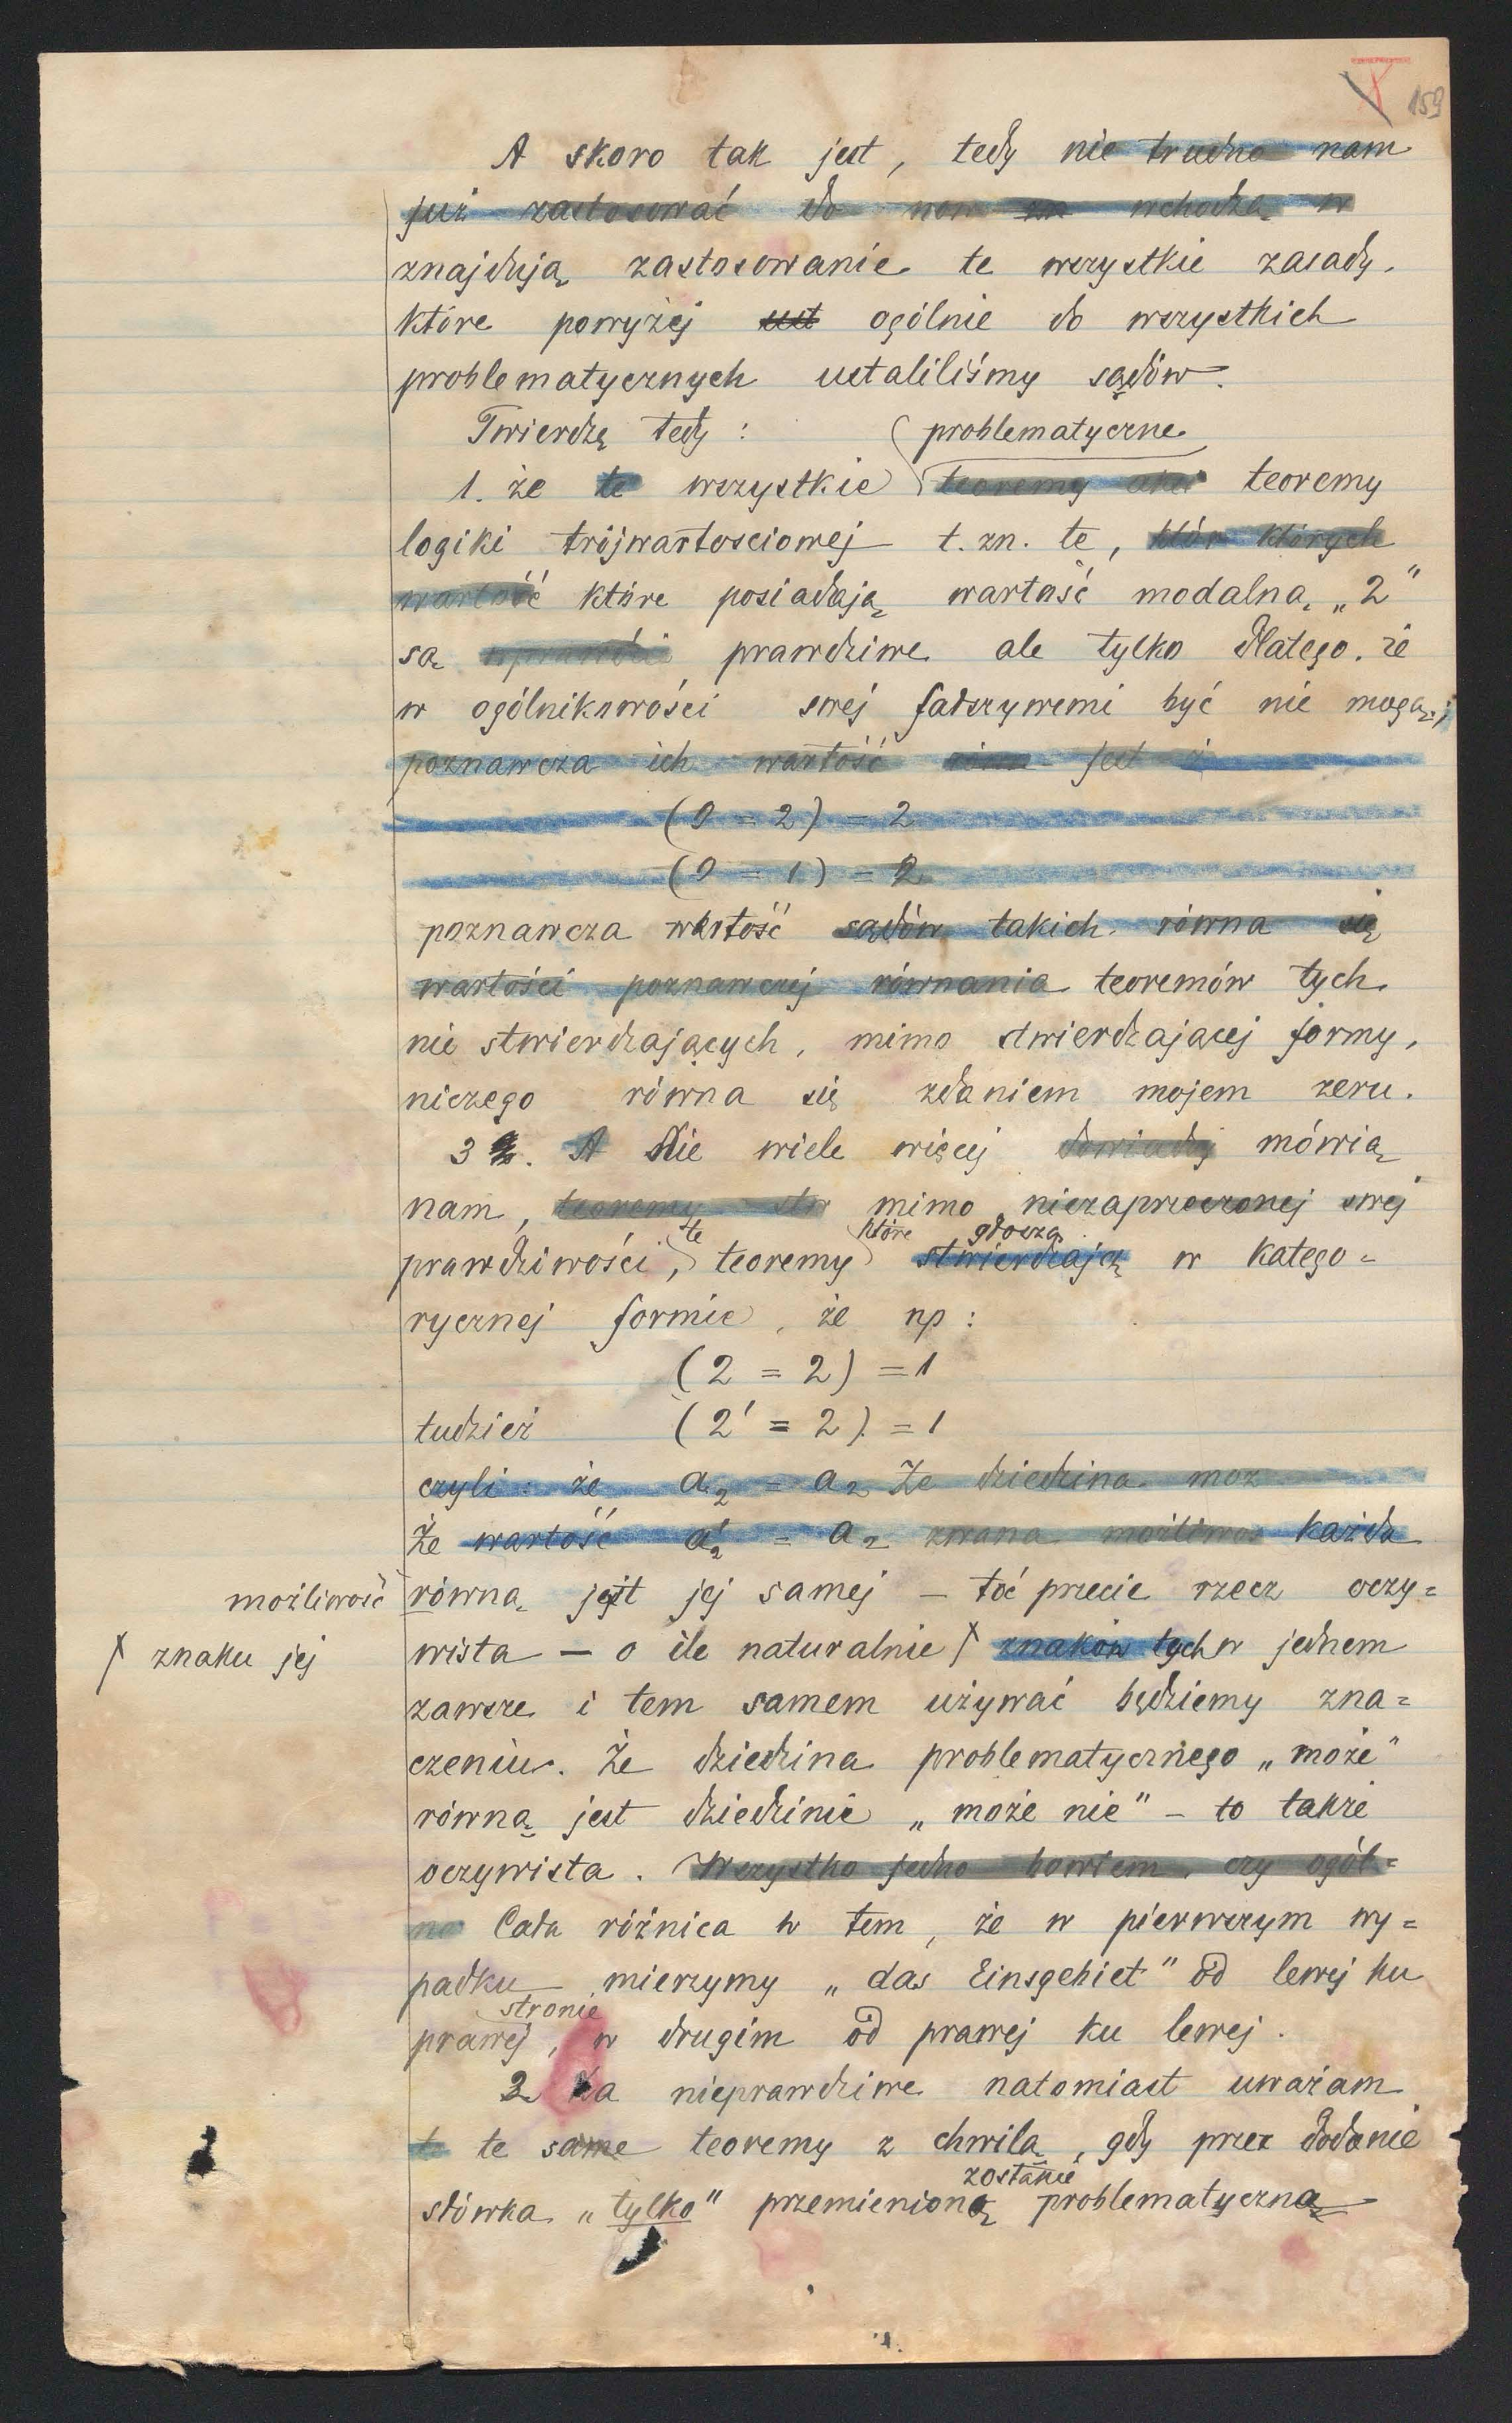 159
A skoro tak jest, tedy nie trudno nam
już zastosować do now wchodzą w
znajdują zastosowanie te wszystkie zasady,
które powyżej ust ogólnie do wszystkich
problematycznych ustaliliśmy sądów.
Twierdzę tedy: problematyczne
1. że te wszystkie teoremy teoremy
logiki trójwartosciowej t. zn. te, któr których
wartość które posiadają wartość modalną „2”
są prawdziwe ale tylko dlatego, że
w ogólnikowości swej fałszywemi być nie mogą;
poznawcza ich wartość jest
(0 = 2) = 2
(0 = 1) = 2
poznawcza wartość sądów takich równa się
wartości poznawczej równania teoremów tych
nie stwierdzających, mimo stwierdzającej formy,
niczego równa się zdaniem mojem zeru.
3. A Nie wiele więcej mówią
nam, teoremy mimo niezaprzeczonej swej
te które głoszą
prawdziwości, teoremy stwierdzają w katego=
rycznej formie, że np:
(2 = 2) = 1
tudzież (2' = 2) = 1
czyli: że a₂ = a₂ Że dziedzina moż
Że wartość a'₂ = a₂ zwana możliwoś każda
możliwość równą jest jej samej – toć przecie rzecz oczy=
znaku jej wista – o ile naturalnie znaków tych w jednem
zawsze i tem samem używać będziemy zna=
czeniu. Że dziedzina problematycznego „może”
równą jest dziedzinie „może nie” – to także
oczywista. Wszystko jedno bowiem, czy ogól=
na Cała różnica w tem, że w pierwszym wy=
padku mierzymy „das Einsgebiet” od lewej ku
stronie
prawej, w drugim od prawej ku lewej.
2 Za nieprawdziwe natomiast uważam
t te same teoremy z chwilą, gdy przez dodanie
zostanie
słówka „tylko” przemienioną problematyczną